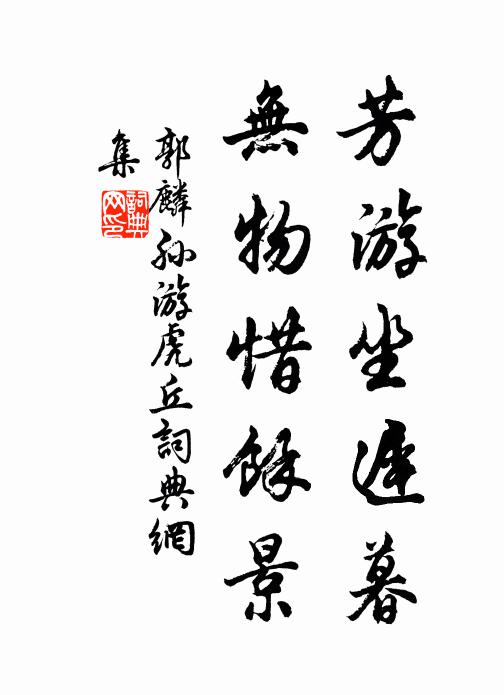 芳游坐遲暮
無物惜餘景
郭麟孙游虎丘詞典網
集
詞典
网印